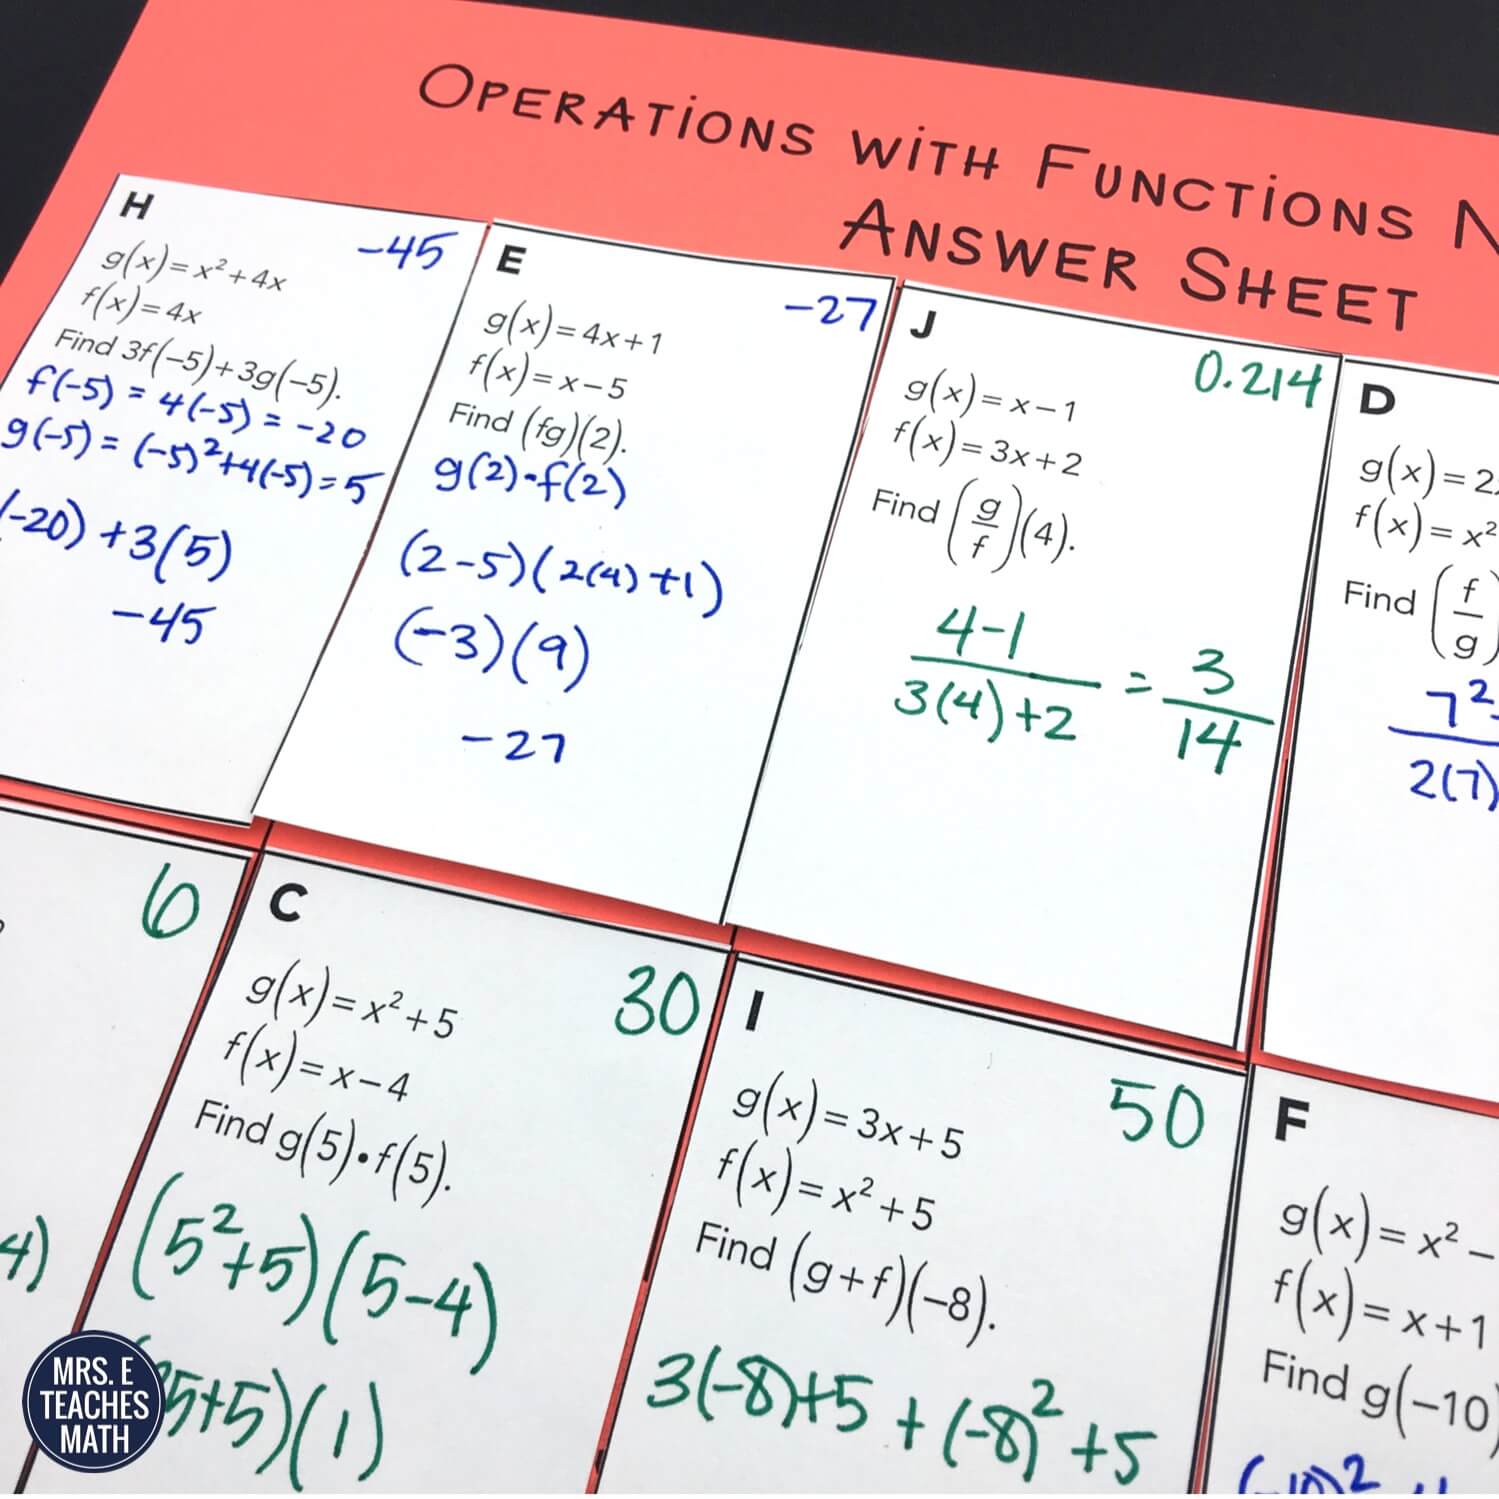 OPERATIONS WITH FUNCTIONS N
ANSWER SHEET
H
-45
g(x)=x²+4x
f(x)=4x
Find 3f(-5)+3g(-5).
f(-5) = 4(-5) = -20
g(-5) = (-5)²+4(-5)=5
(-20) +3(5)
-45
E
-27
g(x)=4x+1
f(x)=x-5
Find (fg)(2).
g(2)•f(2)
(2-5)(2(4)+1)
(-3)(9)
-27
J
0.214
g(x)=x-1
f(x)=3x+2
Find (g/f)(4).
4-1
3(4)+2
= 3/14
D
g(x)=2
f(x)=x²
Find (f/g)
7²-
2(7)
6
4)
C
30
g(x)=x²+5
f(x)=x-4
Find g(5)•f(5).
(5²+5)(5-4)
5+5)(1)
I
50
g(x)=3x+5
f(x)=x²+5
Find (g+f)(-8).
3(-8)+5 + (-8)² +5
F
g(x)=x²-
f(x)=x+1
Find g(-10)
(-10)²
MRS. E
TEACHES
MATH